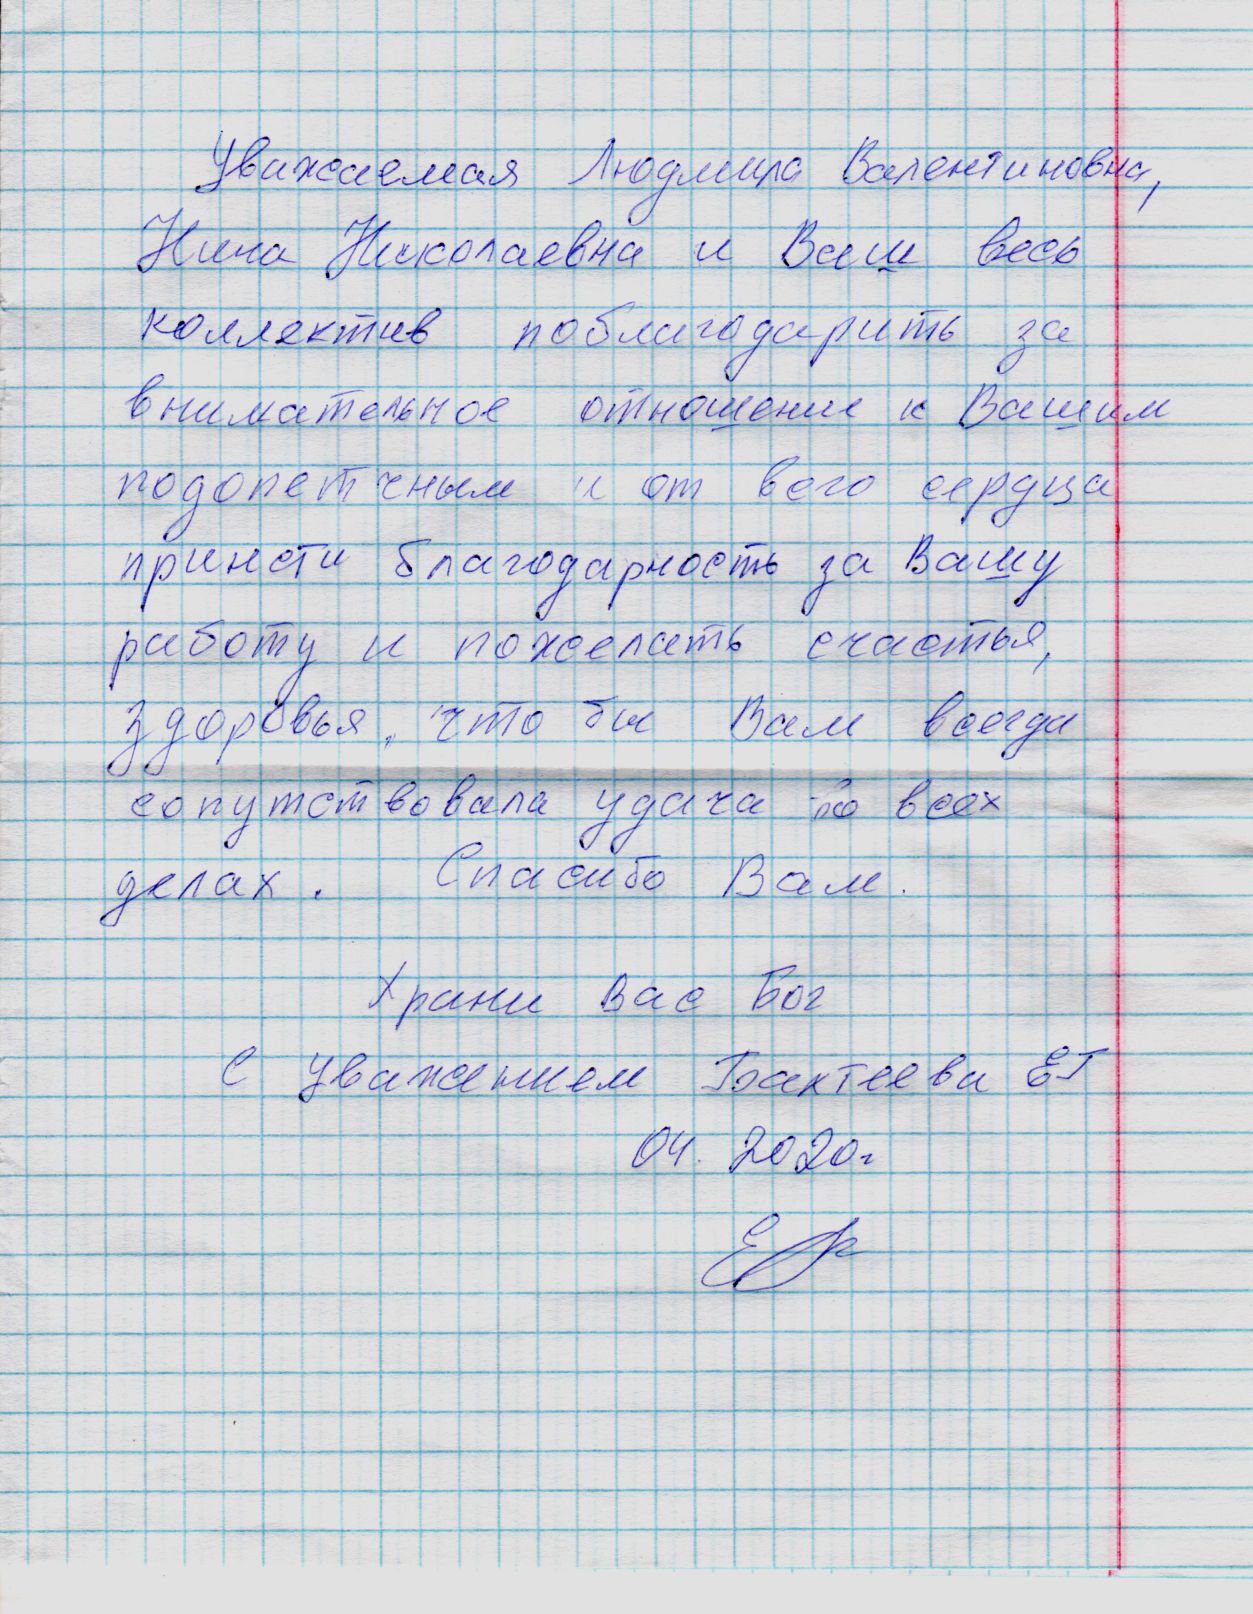 Уважаемая Людмила Валентиновна,
Нина Николаевна и Ваш весь
коллектив поблагодарить за
внимательное отношение к Вашим
подопетчным и от всего сердца
принсти благодарность за Вашу
работу и пожелать счастья,
здоровья, что бы Вам всегда
сопутствовала удача во всех
делах. Спасибо Вам.
Храни Вас Бог
С уважением Бактеева ЕГ
04. 2020г